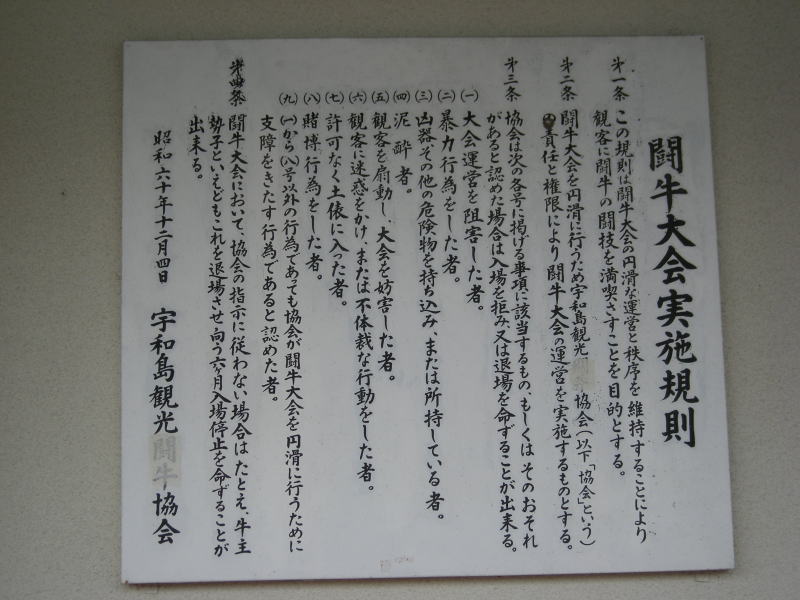 闘牛大会実施規則
第一条 この規則は闘牛大会の円滑な運営と秩序を維持することにより
観客に闘牛の闘技を満喫さすことを目的とする。
第二条 闘牛大会を円滑に行うため宇和島観光 協会(以下「協会」という)
責任と権限により闘牛大会の運営を実施するものとする。
第三条 協会は次の各号に掲げる事項に該当するもの、もしくはそのおそれ
があると認めた場合は入場を拒み、又は退場を命ずることが出来る。
(一) 大会運営を阻害した者。
(二) 暴力行為をした者。
(三) 凶器その他の危険物を持ち込み、または所持している者。
(四) 泥酔者。
(五) 観客を扇動し、大会を妨害した者。
(六) 観客に迷惑をかけ、または不体裁な行動をした者。
(七) 許可なく土俵に入った者。
(八) 賭博行為をした者。
(九) (一)から(八)号以外の行為であっても協会が闘牛大会を円滑に行うために
支障をきたす行為であると認めた者。
第四条 闘牛大会において、協会の指示に従わない場合はたとえ、牛主
勢子といえどもこれを退場させ向う六ヶ月入場停止を命ずることが
出来る。
昭和六十年十二月四日 宇和島観光闘牛協会